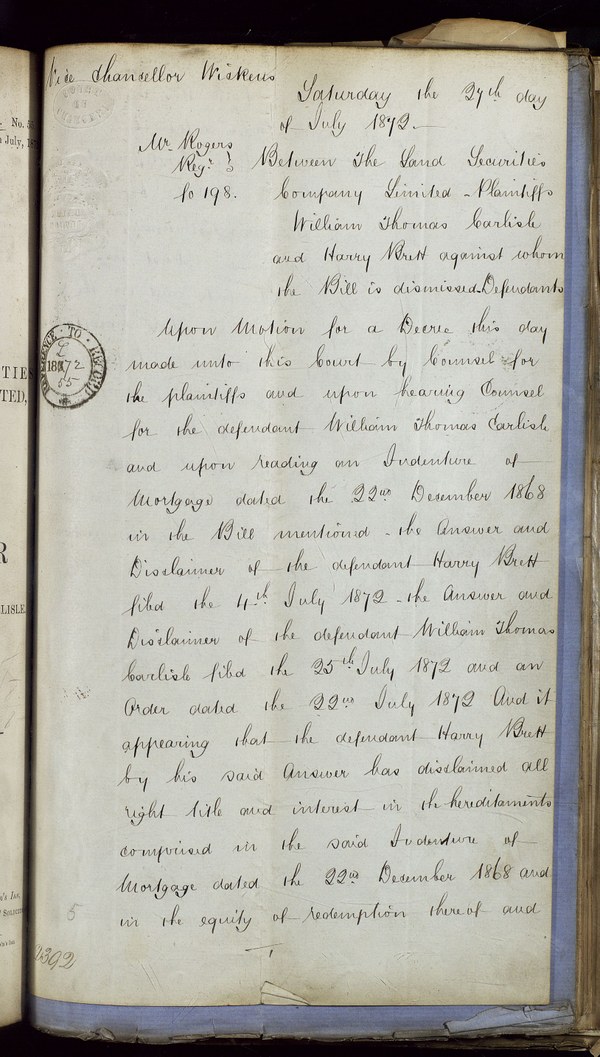 Vice Chancellor Wickens
Saturday the 27th day
of July 1872.
Mr. Rogers
Regr.
fo 198.
Between The Land Securities
Company Limited - Plaintiffs
William Thomas Carlisle
and Harry Brett against whom
the Bill is dismissed - Defendants
Upon Motion for a Decree this day
made unto this Court by Counsel for
the plaintiffs and upon hearing Counsel
for the defendant William Thomas Carlisle
and upon reading an Indenture of
Mortgage dated the 22nd December 1868
in the Bill mentioned - the Answer and
Disclaimer of the defendant Harry Brett
filed the 4th July 1872 - the Answer and
Disclaimer of the defendant William Thomas
Carlisle filed the 25th July 1872 and an
Order dated the 22nd July 1872 And it
appearing that the defendant Harry Brett
by his said Answer has disclaimed all
right title and interest in the hereditaments
comprised in the said Indenture of
Mortgage dated the 22nd December 1868 and
in the equity of redemption thereof and
1
5
No.
July,
TIES
TED,
R
LISLE
TO
1872
55